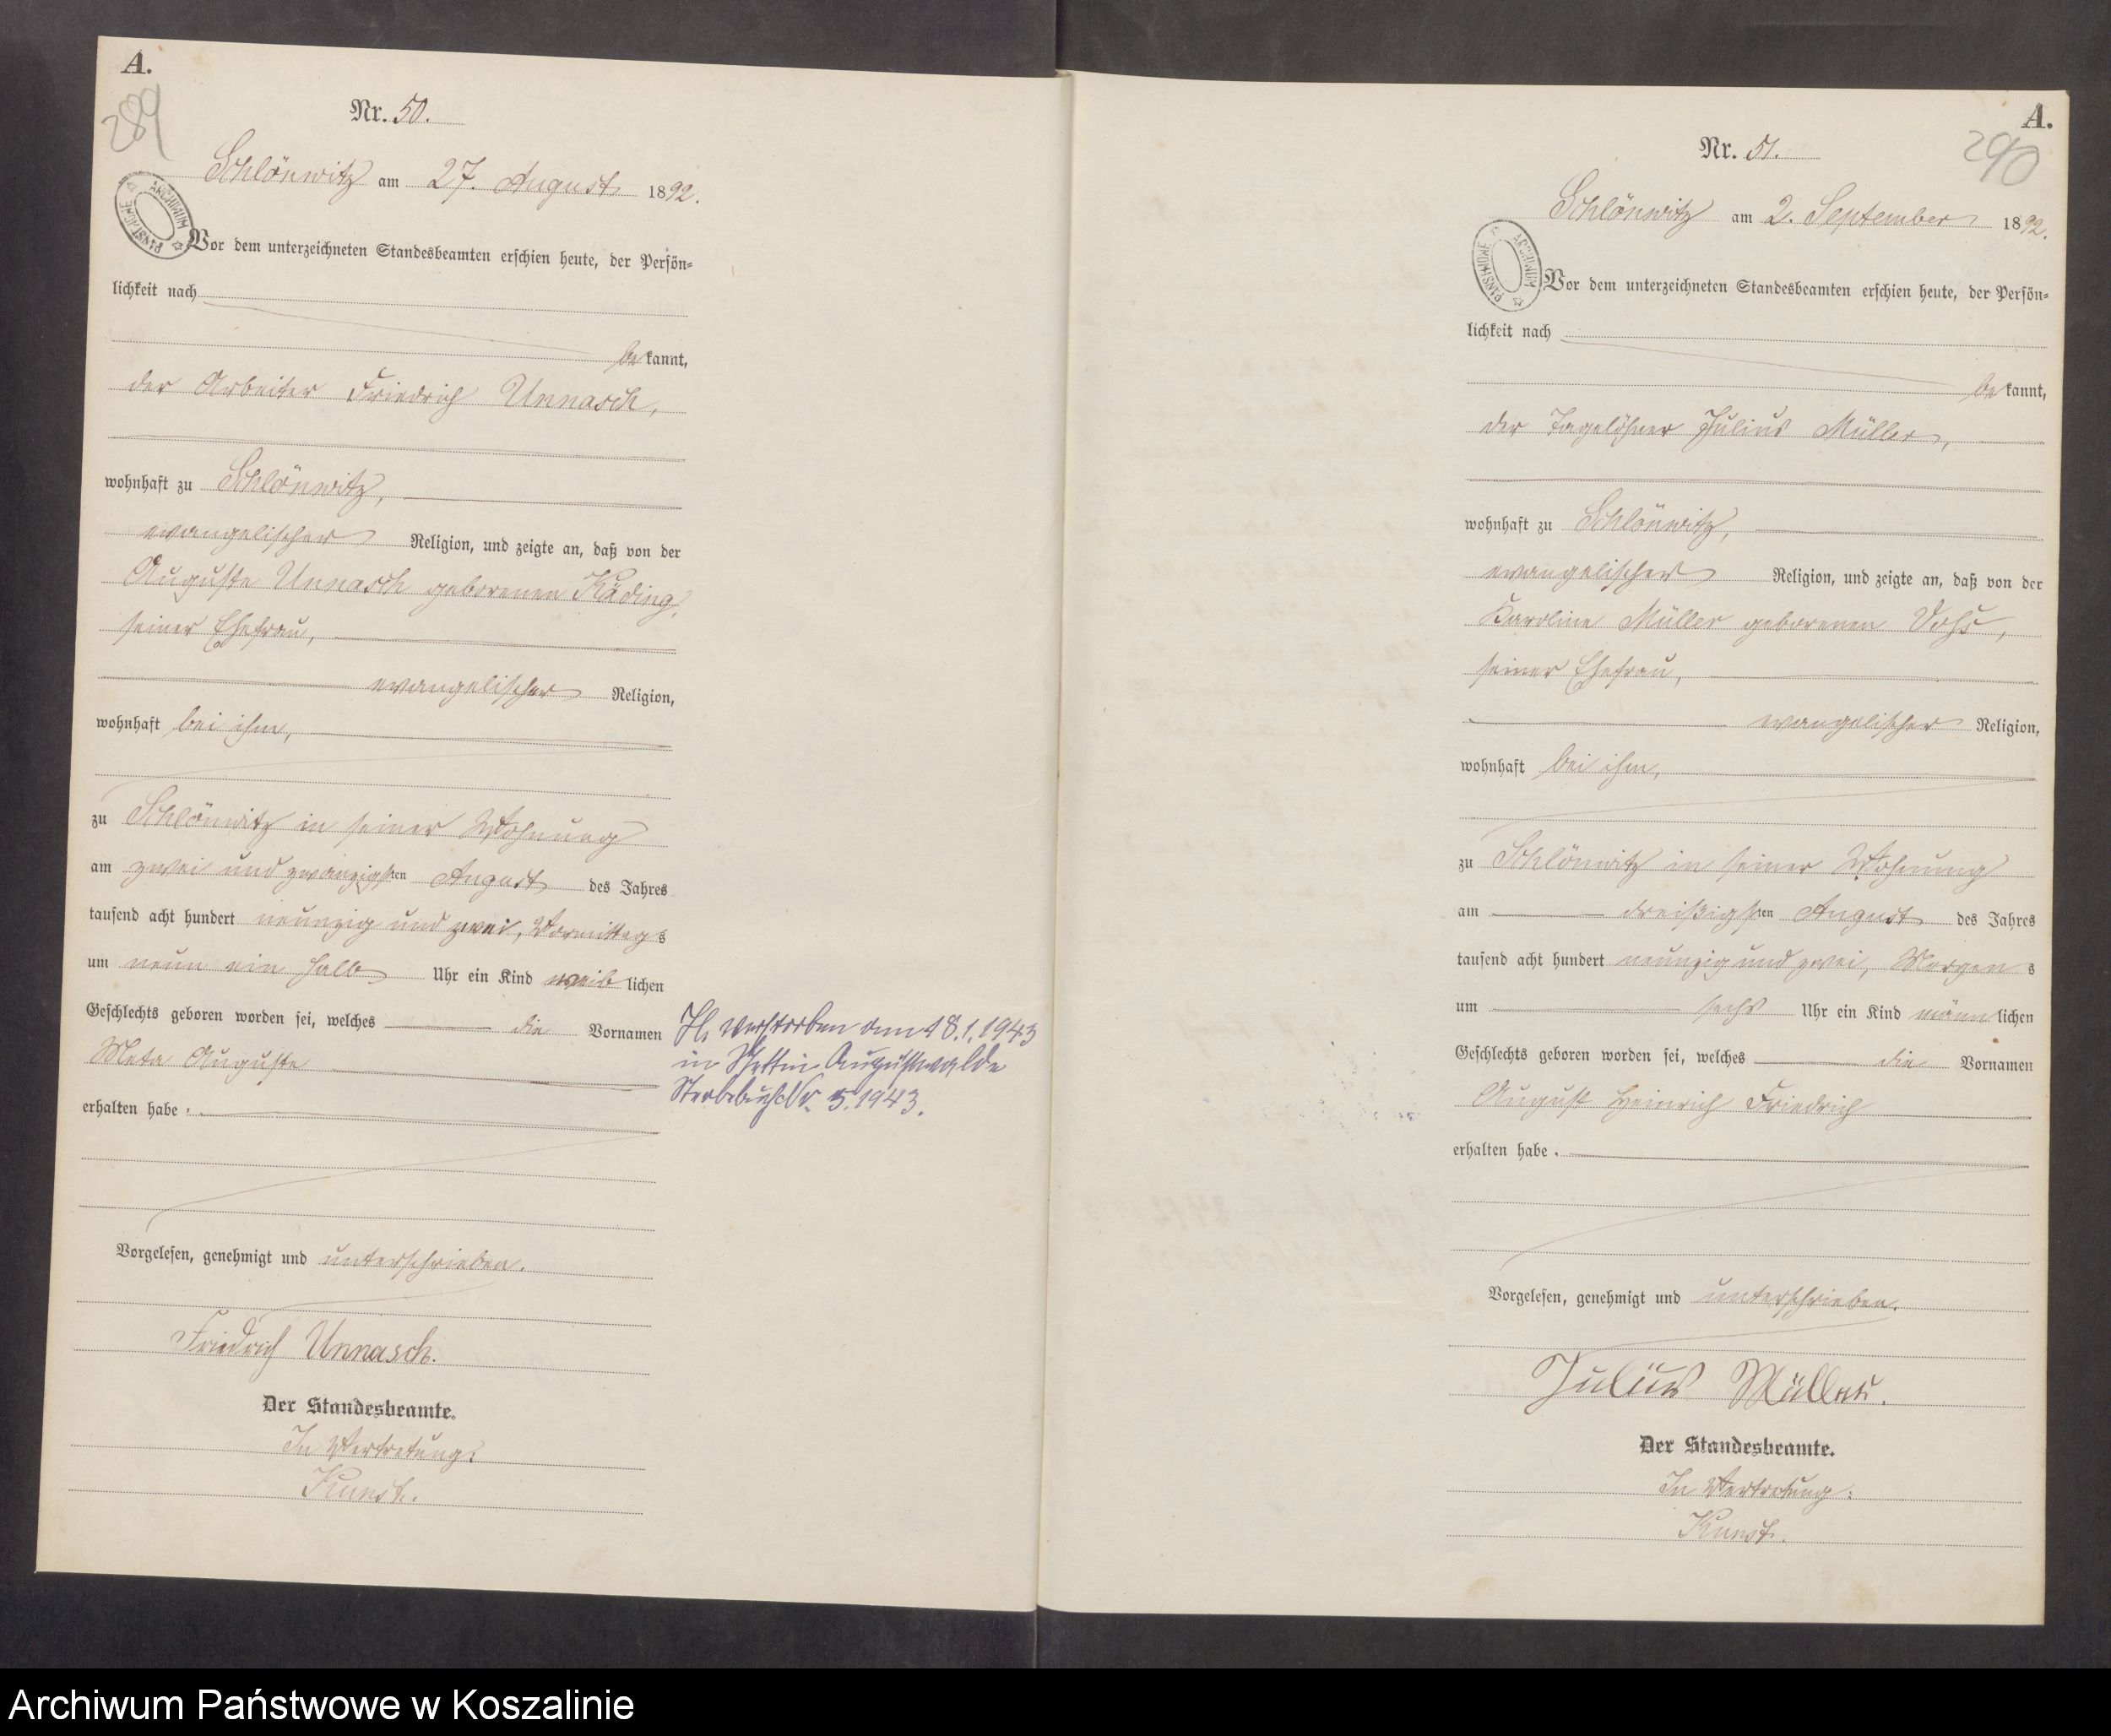 A.
289
Nr. 50.
Schlönwitz am 27. August 1892.
ARCHIWUM PAŃSTWOWE
Vor dem unterzeichneten Standesbeamten erschien heute, der Persön-
lichkeit nach
be kannt,
der Arbeiter Friedrich Unnasch,
wohnhaft zu Schlönwitz,
evangelischer Religion, und zeigte an, daß von der
Auguste Unnasch geborenen Käding,
seiner Ehefrau,
evangelischer Religion,
wohnhaft bei ihm,
zu Schlönwitz in seiner Wohnung
am zwei und zwanzigsten August des Jahres
tausend acht hundert neunzig und zwei, Vormittags
um neun ein halb Uhr ein Kind weib lichen
Geschlechts geboren worden sei, welches die Vornamen
Meta Auguste
erhalten habe.
H. verstorben am 18.1.1943
in Stettin-Augustwalde
Sterbebuch Nr. 5.1943.
Vorgelesen, genehmigt und unterschrieben.
Friedrich Unnasch.
Der Standesbeamte.
In Vertretung:
Kunst.
A.
290
Nr. 51.
Schlönwitz am 2. September 1892.
ARCHIWUM PAŃSTWOWE
Vor dem unterzeichneten Standesbeamten erschien heute, der Persön-
lichkeit nach
be kannt,
der Tagelöhner Julius Müller,
wohnhaft zu Schlönwitz,
evangelischer Religion, und zeigte an, daß von der
Karoline Müller geborenen Vohs,
seiner Ehefrau,
evangelischer Religion,
wohnhaft bei ihm,
zu Schlönwitz in seiner Wohnung
am dreißigsten August des Jahres
tausend acht hundert neunzig und zwei, Morgens
um sechs Uhr ein Kind männ lichen
Geschlechts geboren worden sei, welches die Vornamen
August Heinrich Friedrich
erhalten habe.
Vorgelesen, genehmigt und unterschrieben.
Julius Müller.
Der Standesbeamte.
In Vertretung:
Kunst.
Archiwum Państwowe w Koszalinie